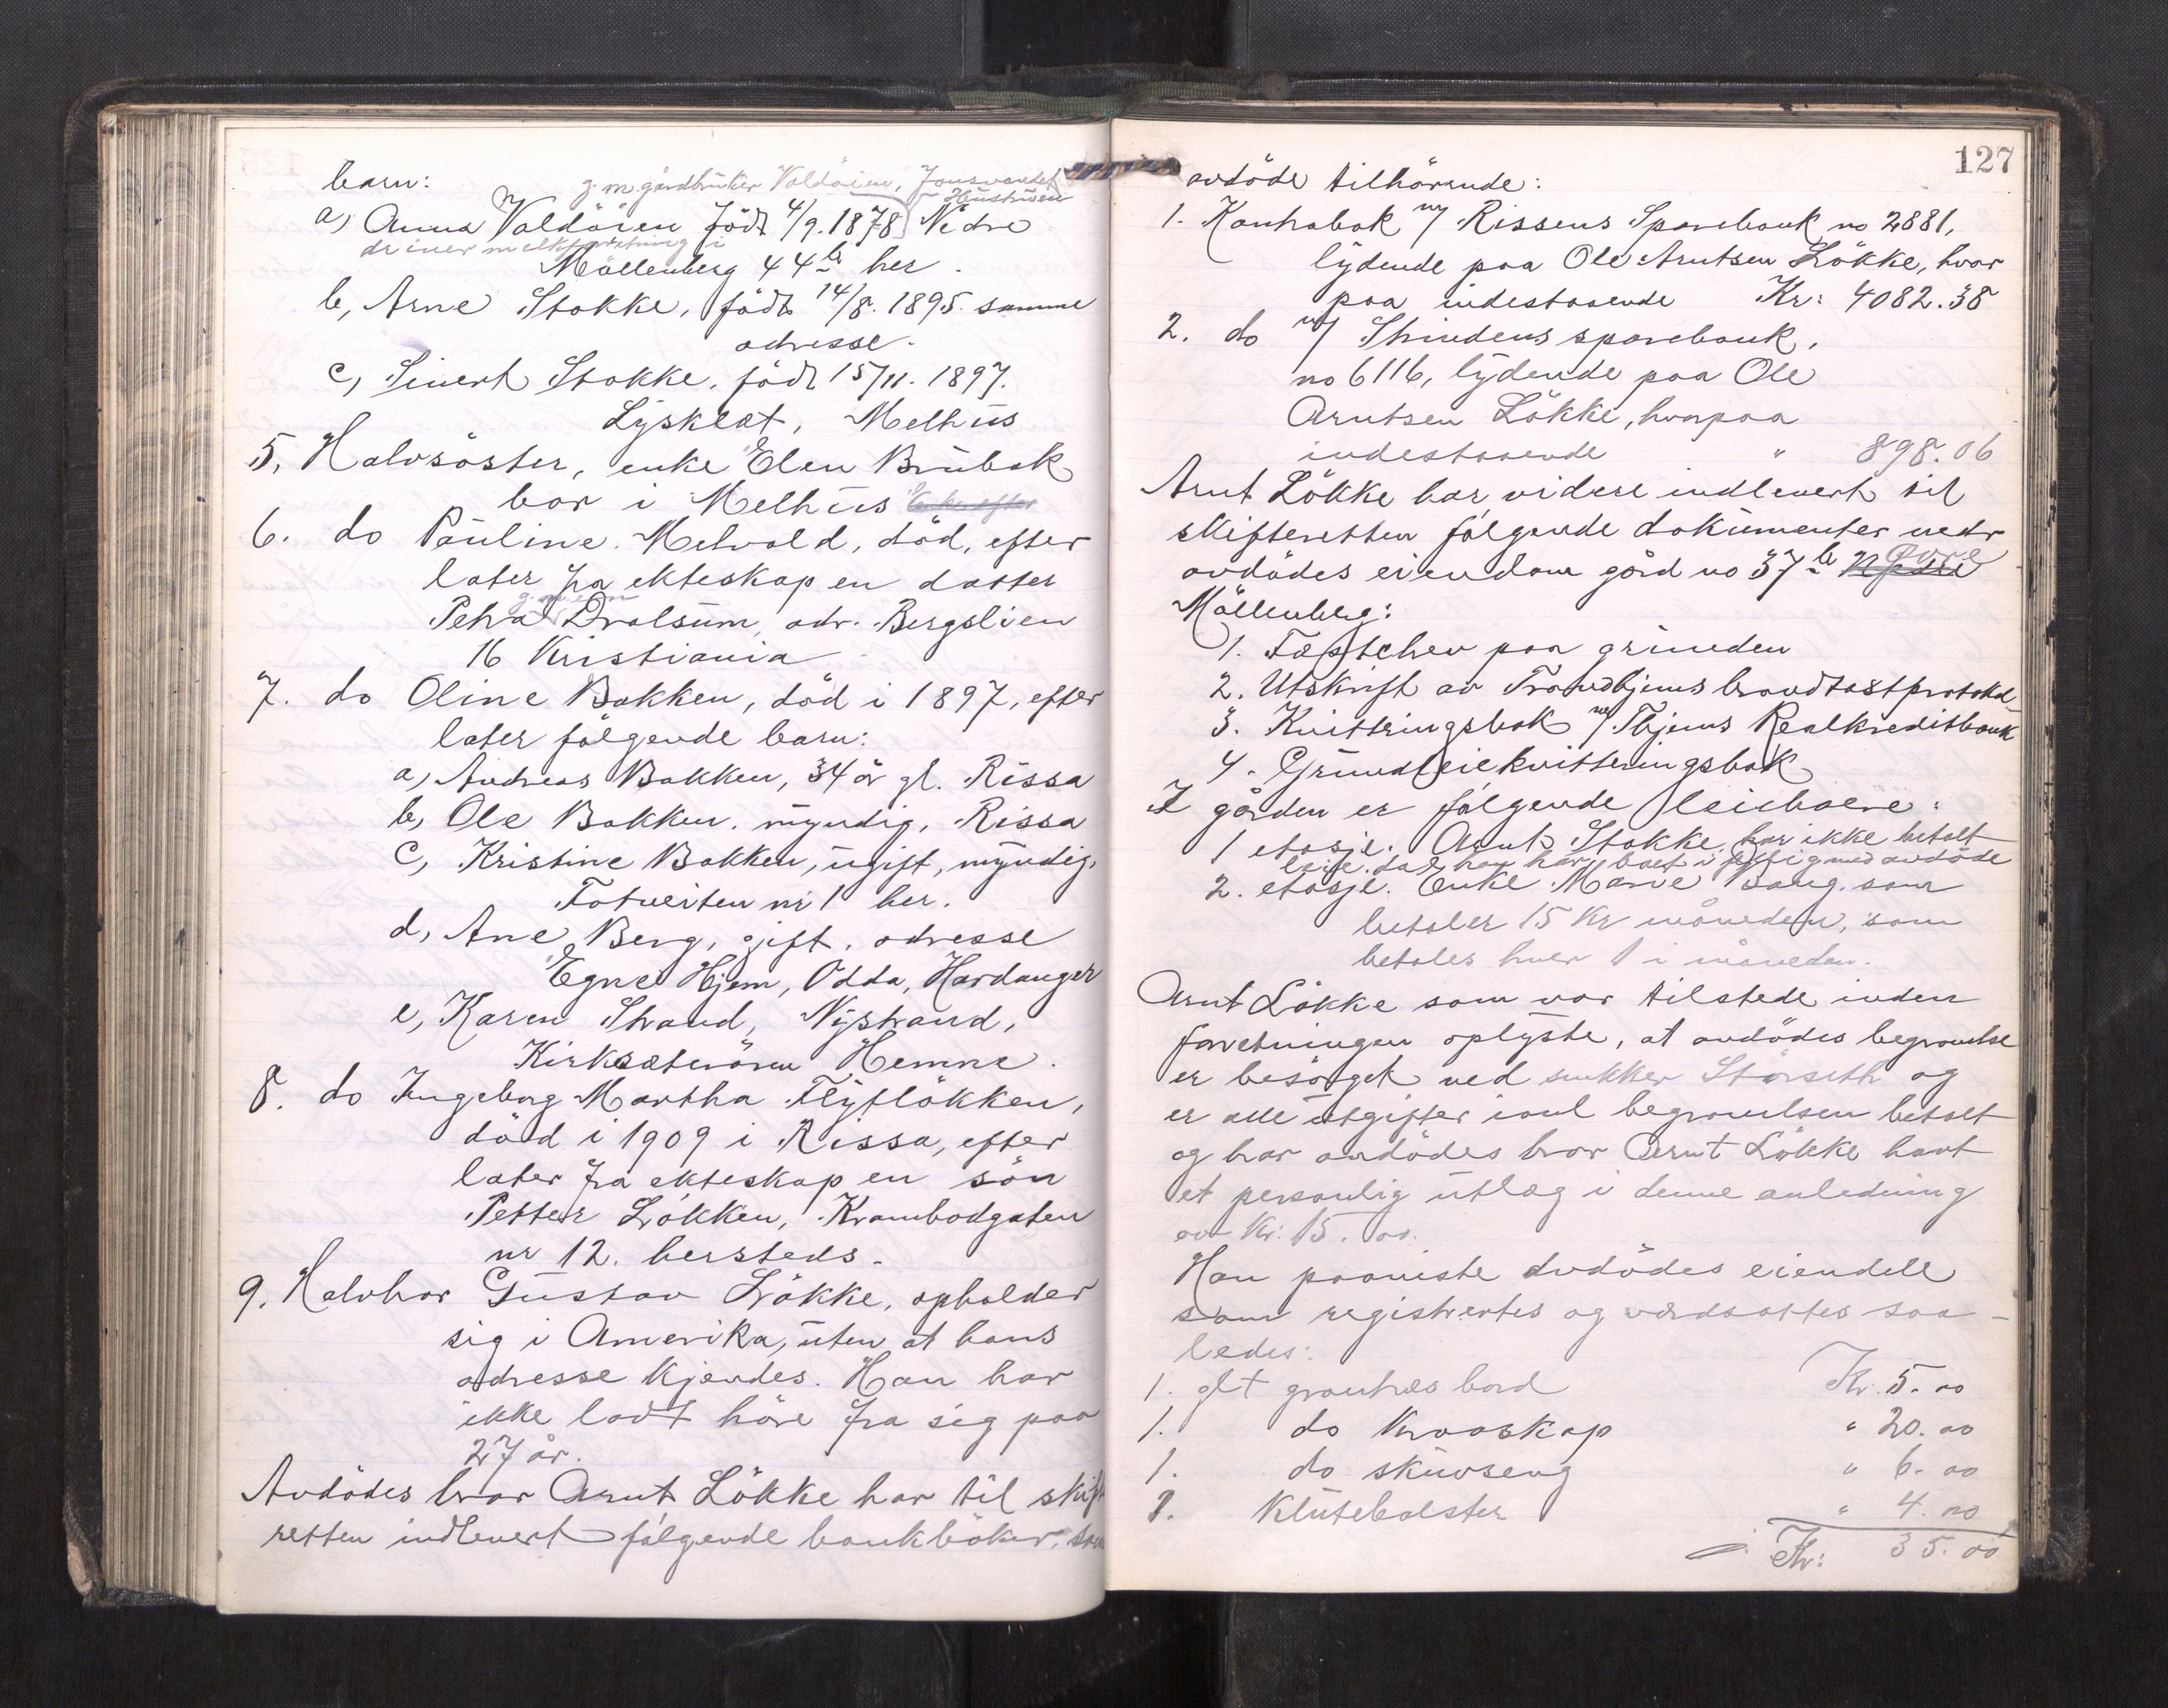 barn:
g. m. gårdbruker Valdöien, Jonsvandet
Hustruen
a, Anna Valdöien född 4/9. 1878 Nedre
driver melkforretning i
Möllenberg 44 b her.
b, Arne Stokke, född 14/8. 1895. samme
adresse.
c, Sivert Stokke, född 15/11. 1897.
Lysklet, Melhus
5, Halvsöster, enke Elen Brubak
bor i Melhus
6. do Pauline Melvold, död, efter
later fra ekteskap en datter
Petra Dralsum, adr. Bergslien
16 Kristiania
7. do Oline Bakken, död i 1897, efter
later fölgende barn:
a, Andreas Bakken, 34 år gl. Rissa
b, Ole Bakken, myndig, Rissa
c, Kristine Bakken, ugift, myndig,
Totveiten nr 1 her.
d, Ane Berg, gift, adresse
Egne Hjem, Odda, Hardanger
e, Karen Strand, Nystrand,
Kirksæterören Hemne.
8. do Ingeborg Martha Flytlökken,
död i 1909 i Rissa, efter
later fra ekteskap en sön
Petter Lökken, Krambodgaten
nr 12. hersteds.
9. Halvbror Gustav Lökke, opholder
sig i Amerika, uten at hans
adresse kjendes. Han har
ikke ladt höre fra sig paa
27 år.
Avdödes bror Arnt Lökke har til skift
retten indlevert fölgende bankböker, som
127
avdöde tilhörende:
1. Kontrabok m/ Rissens Sparebank no 2881,
lydende paa Ole Arntsen Lökke, hvor
paa indestaaende Kr: 4082.38
2. do m/ Strindens sparebank,
no 6116, lydende paa Ole
Arntsen Lökke, hvorpaa
indestaaende " 898.06
Arnt Lökke har videre indlevert til
skifteretten fölgende dokumenter vedr
avdödes eiendom gård no 37 b Nedre Övre
Möllenberg:
1. Fæstebrev paa grunden
2. Utskrift av Trondhjems brandtastprotokol
3. Kvittringsbok m/ Thjems Realkreditbank
4. Grundleiekvitteringsbok
I gården er fölgende leieboere:
1 etasje. Arnt Stokke, har ikke betalt
leie, da han har boet i fællig med avdöde
2. etasje. Enke Marie Haug, som
betaler 15 Kr måneden, som
betales hver 1 i måneden.
Arnt Lökke som var tilstede under
forretningen oplyste, at avdödes begravelse
er besörget ved snekker Störseth og
er alle utgifter ianl begravelsen betalt
og har avdödes bror Arnt Lökke havt
et personlig utlæg i denne anledning
av Kr: 15. 00.
Han paaviste avdödes eiendele
som registrertes og værdsattes saa-
ledes:
1. glt grantræs bord Kr. 5. 00
1. do kroaskap " 20. 00
1. do skuvseng " 6. 00
1. klutebolster " 4. 00
Kr: 35. 00